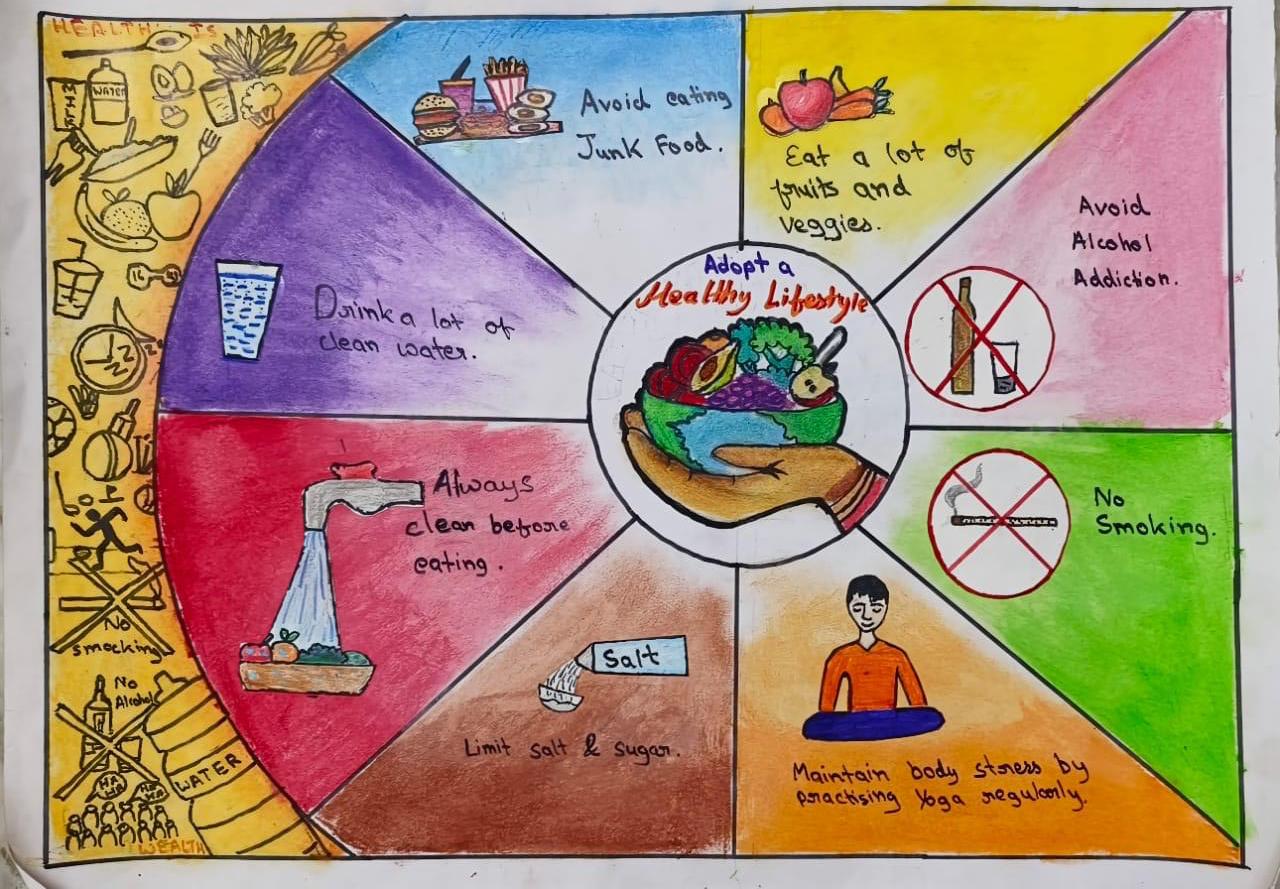 HEALTH IS
WATER
Avoid eating
Junk Food.
Eat a lot of
fruits and
veggies.
Avoid
Alcohol
Addiction.
Adopt a
Healthy Lifestyle
Drink a lot of
clean water.
Always
clean before
eating.
No
Smoking.
Salt
Limit salt & sugar.
Maintain body stress by
practising Yoga regularly.
No
smocking
No
Alcohol
WATER
HA
HA
WEALTH